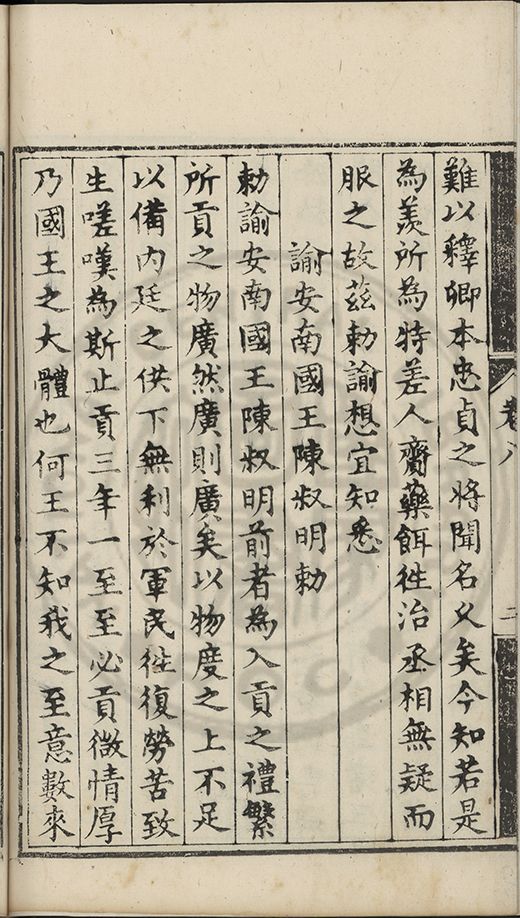 難以釋卿本忠貞之將聞名久矣今知若是
為羨所為特差人齎藥餌徃治丞相無疑而
服之故茲勅諭想宜知悉
諭安南國王陳叔明勅
勅諭安南國王陳叔明前者為入貢之禮繁
所貢之物廣然廣則廣矣以物度之上不足
以備內廷之供下無利於軍民徃復勞苦致
生嗟嘆為斯止貢三年一至至必貢微情厚
乃國王之大體也何王不知我之至意數來
卷八
二